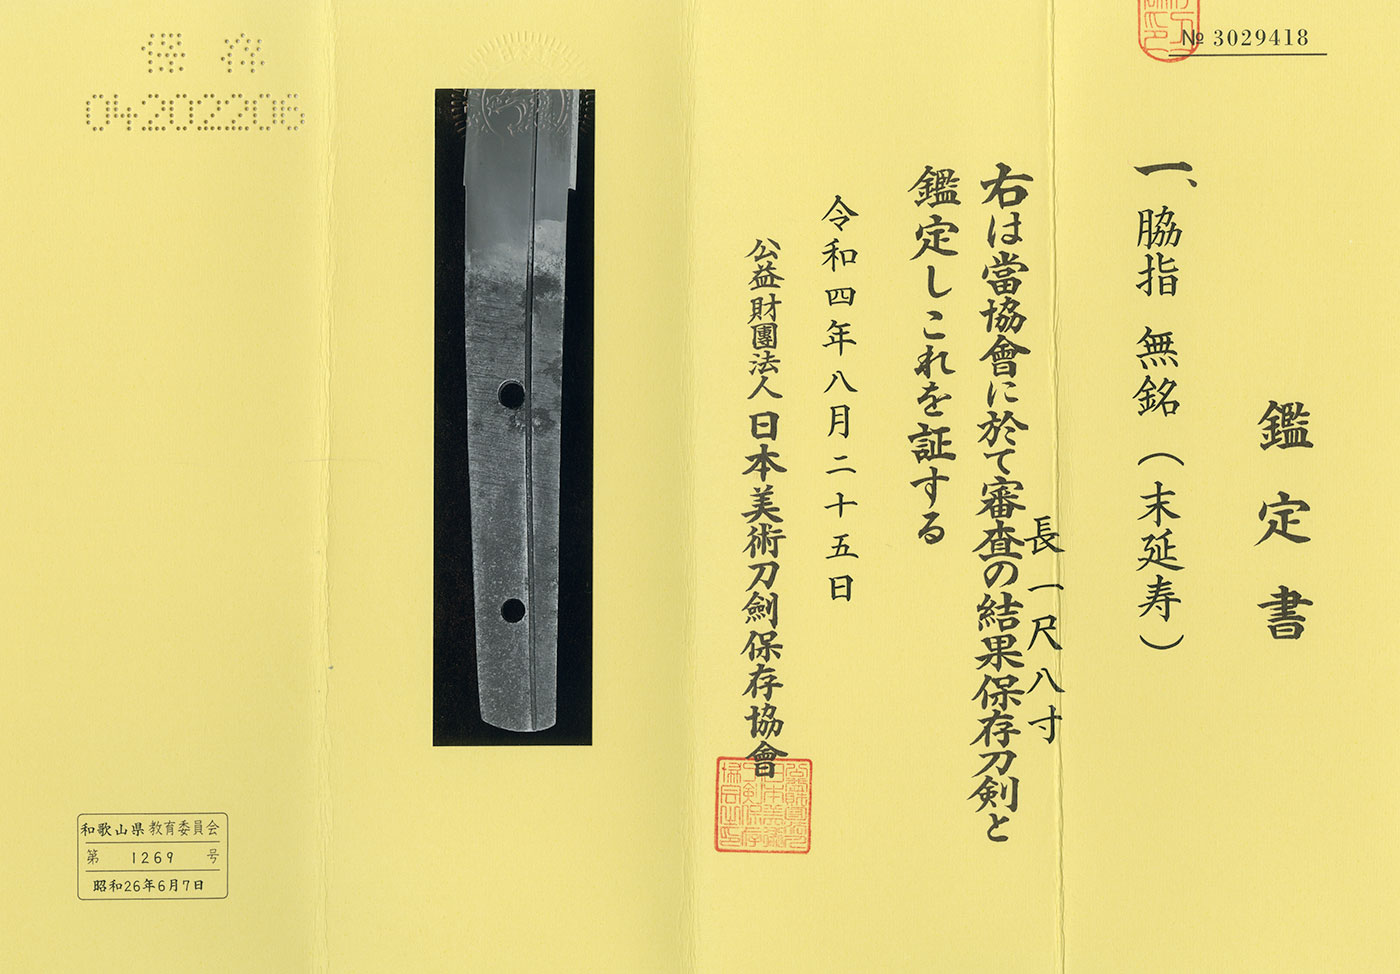 № 3029418
鑑定書
一、脇指 無銘（末延寿）
長一尺八寸
右は當協會に於て審査の結果保存刀剣と
鑑定しこれを証する
令和四年八月二十五日
公益財團法人 日本美術刀劍保存協會
保存
04202206
和歌山県教育委員会
第 1269 号
昭和26年6月7日